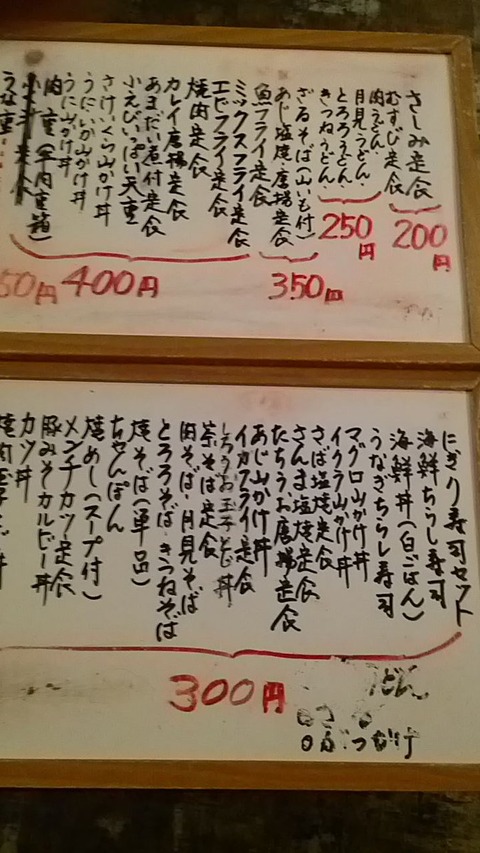 さしみ定食
むすび定食
200円
肉うどん.
月見うどん.
とろろうどん.
きつねうどん.
250円
ざるそば(山いも付)
あじ塩焼・唐揚定食
魚フライ定食
350円
ミックスフライ定食
エビフライ定食
焼肉定食
カレイ唐揚定食
あまだい煮付定食
小えびいっぱい天重
さけいくら山かけ丼
うにいか山かけ丼
うに山かけ丼
肉重(牛肉重箱)
うな重
400円
50円
にぎり寿司セット
海鮮ちらし寿司
海鮮丼(白ごはん)
うなぎちらし寿司
マグロ山かけ丼
イクラ山かけ丼
さば塩焼定食
さんま塩焼定食
たちうお唐揚定食
あじ山かけ丼
イカフライ定食
しろうお玉子とじ丼
茶そば定食
肉そば・月見そば
とろろそば・きつねそば
焼そば(単品)
ちゃんぽん
焼めし(スープ付)
メンチカツ定食
豚みそカルビー丼
カツ丼
300円
うどん
ぶっかけ